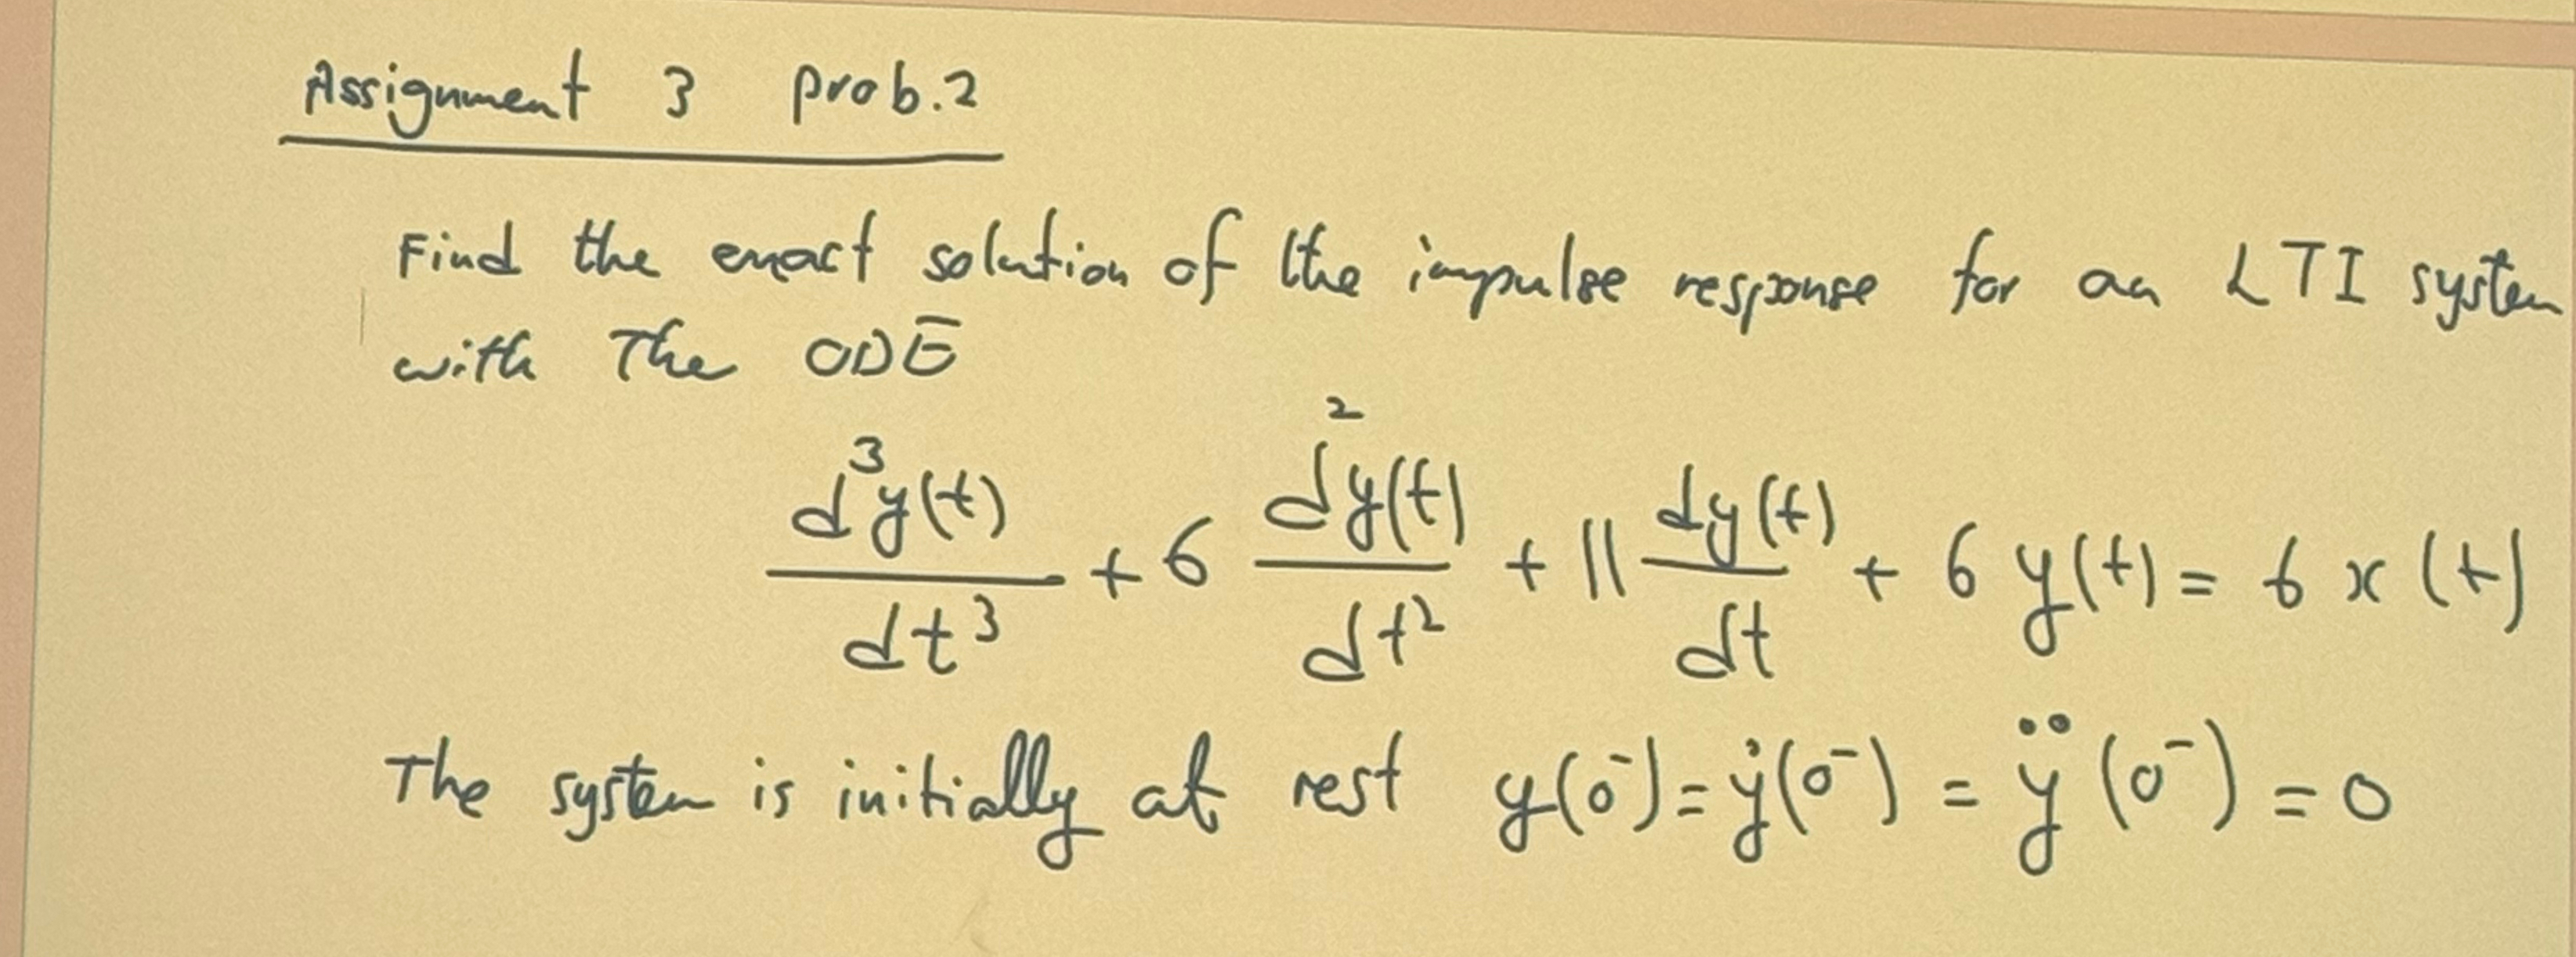 Assignment 3 prob.2
Find the exact solution of the impulse response for an LTI system
with The ODE
d³y(t)/dt³ + 6 d²y(t)/dt² + 11 dy(t)/dt + 6 y(t) = 6 x(t)
The system is initially at rest y(0⁻) = ẏ(0⁻) = ÿ(0⁻) = 0